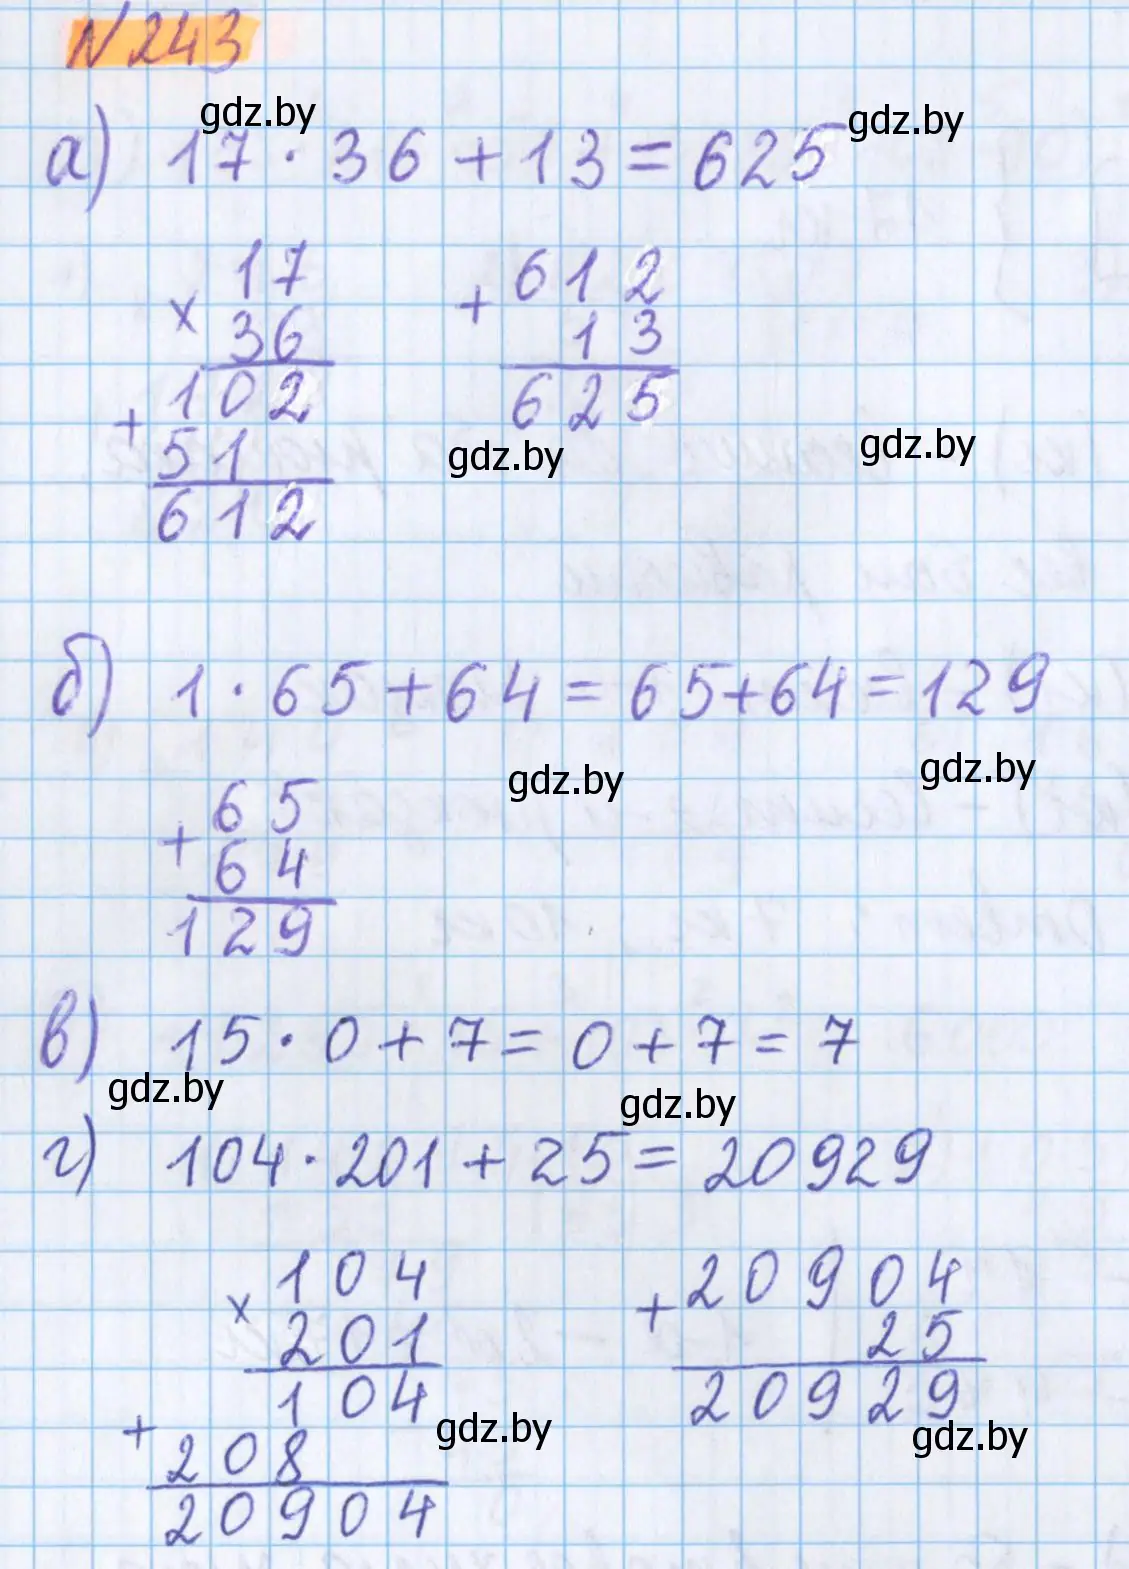 N 243
gdz.by
gdz.by
а) 17 · 36 + 13 = 625
17
× 36
102
+ 51
612
612
+ 13
625
gdz.by
gdz.by
б) 1 · 65 + 64 = 65 + 64 = 129
gdz.by
gdz.by
65
+ 64
129
в) 15 · 0 + 7 = 0 + 7 = 7
gdz.by
gdz.by
г) 104 · 201 + 25 = 20929
104
× 201
104
+ 208
20904
20904
+ 25
20929
gdz.by
gdz.by